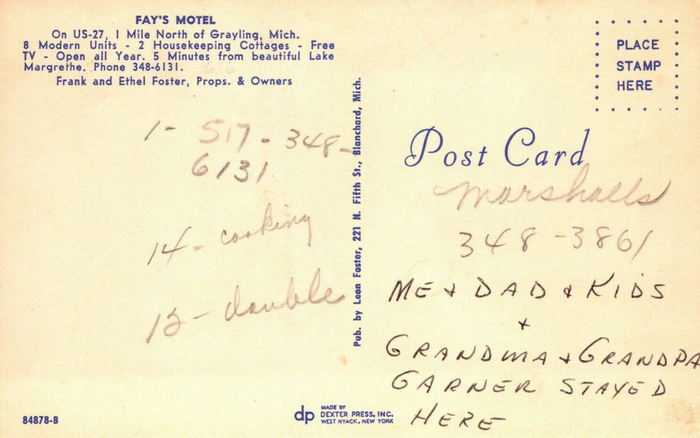 FAY'S MOTEL
On US-27, 1 Mile North of Grayling, Mich.
8 Modern Units - 2 Housekeeping Cottages - Free
TV - Open all Year. 5 Minutes from beautiful Lake
Margrethe. Phone 348-6131.
Frank and Ethel Foster, Props. & Owners
1 - 517 - 348 -
6131
14 - cooking
12 - double
84878-B
Pub. by Leon Foster, 221 N. Fifth St., Blanchard, Mich.
dp MADE BY
DEXTER PRESS, INC.
WEST NYACK, NEW YORK
PLACE
STAMP
HERE
Post Card
Marshalls
348-3861
ME + DAD + KIDS
+
GRANDMA + GRANDPA
GARNER STAYED
HERE